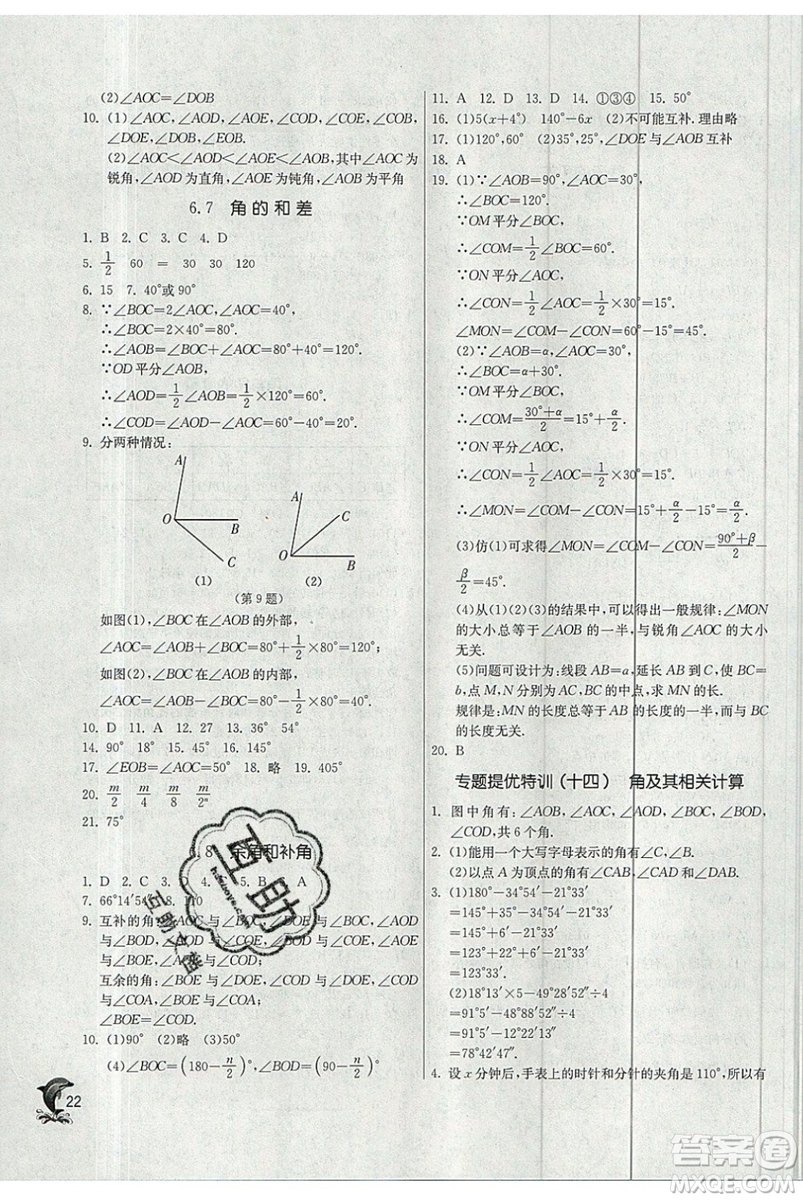 (2)∠AOC=∠DOB
10. (1)∠AOC,∠AOD,∠AOE,∠COD,∠COE,∠COB,
∠DOE,∠DOB,∠EOB.
(2)∠AOC<∠AOD<∠AOE<∠AOB,其中∠AOC为
锐角,∠AOD为直角,∠AOE为钝角,∠AOB为平角
6.7 角的和差
1. B 2. C 3. C 4. D
5. 1/2 60 = 30 30 120
6. 15 7. 40°或90°
8. ∵∠BOC=2∠AOC,∠AOC=40°,
∴∠BOC=2×40°=80°.
∴∠AOB=∠BOC+∠AOC=80°+40°=120°.
∵OD平分∠AOB,
∴∠AOD=1/2∠AOB=1/2×120°=60°.
∴∠COD=∠AOD−∠AOC=60°−40°=20°.
9. 分两种情况:
A
O
B
C
(1)
A
C
O
B
(2)
(第9题)
如图(1),∠BOC在∠AOB的外部,
∠AOC=∠AOB+∠BOC=80°+1/2×80°=120°;
如图(2),∠BOC在∠AOB的内部,
∠AOC=∠AOB−∠BOC=80°−1/2×80°=40°.
10. D 11. A 12. 27 13. 36° 54°
14. 90° 15. 180° 16. 145°
17. ∠EOB=∠AOC=50° 18. 略 19. 405°
20. m/2 m/8 m/2ⁿ
21. 75°
8 余角和补角
1. D 2. C 3. D 4. C 5. B 6. A
7. 66°14′54″ 8. 110
9. 互补的角:∠AOD与∠BOD,∠BOC与∠AOC,∠AOD
与∠BOE,∠AOE与∠BOE,∠AOE与∠BOD,∠AOE
与∠COD.
互余的角:∠BOE与∠DOE,∠BOE与∠COA,∠COD
与∠COA,∠DOE与∠COD.
∠BOE=∠COD.
10. (1)90° (2)略 (3)50°
(4)∠BOC=(180−n/2)°,∠BOD=(90−n/2)°
11. A 12. D 13. D 14. ①③④ 15. 50°
16. (1)5(x+4°) 140°−6x (2)不可能互补.理由略
17. (1)120°,60° (2)35°,25°,∠DOE与∠AOB互补
18. A
19. (1)∵∠AOB=90°,∠AOC=30°,
∴∠BOC=120°.
∵OM平分∠BOC,
∴∠COM=1/2∠BOC=60°.
∵ON平分∠AOC,
∴∠CON=1/2∠AOC=1/2×30°=15°.
∠MON=∠COM−∠CON=60°−15°=45°.
(2)∵∠AOB=α,∠AOC=30°,
∴∠BOC=α+30°.
∵OM平分∠BOC,
∴∠COM=(30°+α)/2=15°+α/2.
∵ON平分∠AOC,
∴∠CON=1/2∠AOC=1/2×30°=15°.
∴∠MON=∠COM−∠CON=15°+α/2−15°=α/2.
(3)仿(1)可求得∠MON=∠COM−∠CON=(90°+β)/2−
β/2=45°.
(4)从(1)(2)(3)的结果中,可以得出一般规律:∠MON
的大小总等于∠AOB的一半,与锐角∠AOC的大小
无关.
(5)问题可设计为:线段AB=a,延长AB到C,使BC=
b,点M,N分别为AC,BC的中点,求MN的长.
规律是:MN的长度总等于AB的长度的一半,与BC
的长度无关.
20. B
专题提优特训(十四) 角及其相关计算
1. 图中角有:∠AOB,∠AOC,∠AOD,∠BOC,∠BOD,
∠COD,共6个角.
2. (1)能用一个大写字母表示的角有∠C,∠B.
(2)以点A为顶点的角有∠CAB,∠CAD,∠DAB.
3. (1)180°−34°54′+21°33′
=145°+35°−34°54′+21°33′
=145°+6′+21°33′
=123°+22°+6′+21°33′
=123°+22°6′−21°33′
=123°33′.
(2)18°13′×5−49°28′52″÷4
=91°5′−49°28′52″÷4
=91°5′−12°22′13″
=78°42′47″.
4. 设x分钟后,手表上的时针和分针的夹角是110°,所以有
22
互助
互助文档
答案圈
MXQE.COM